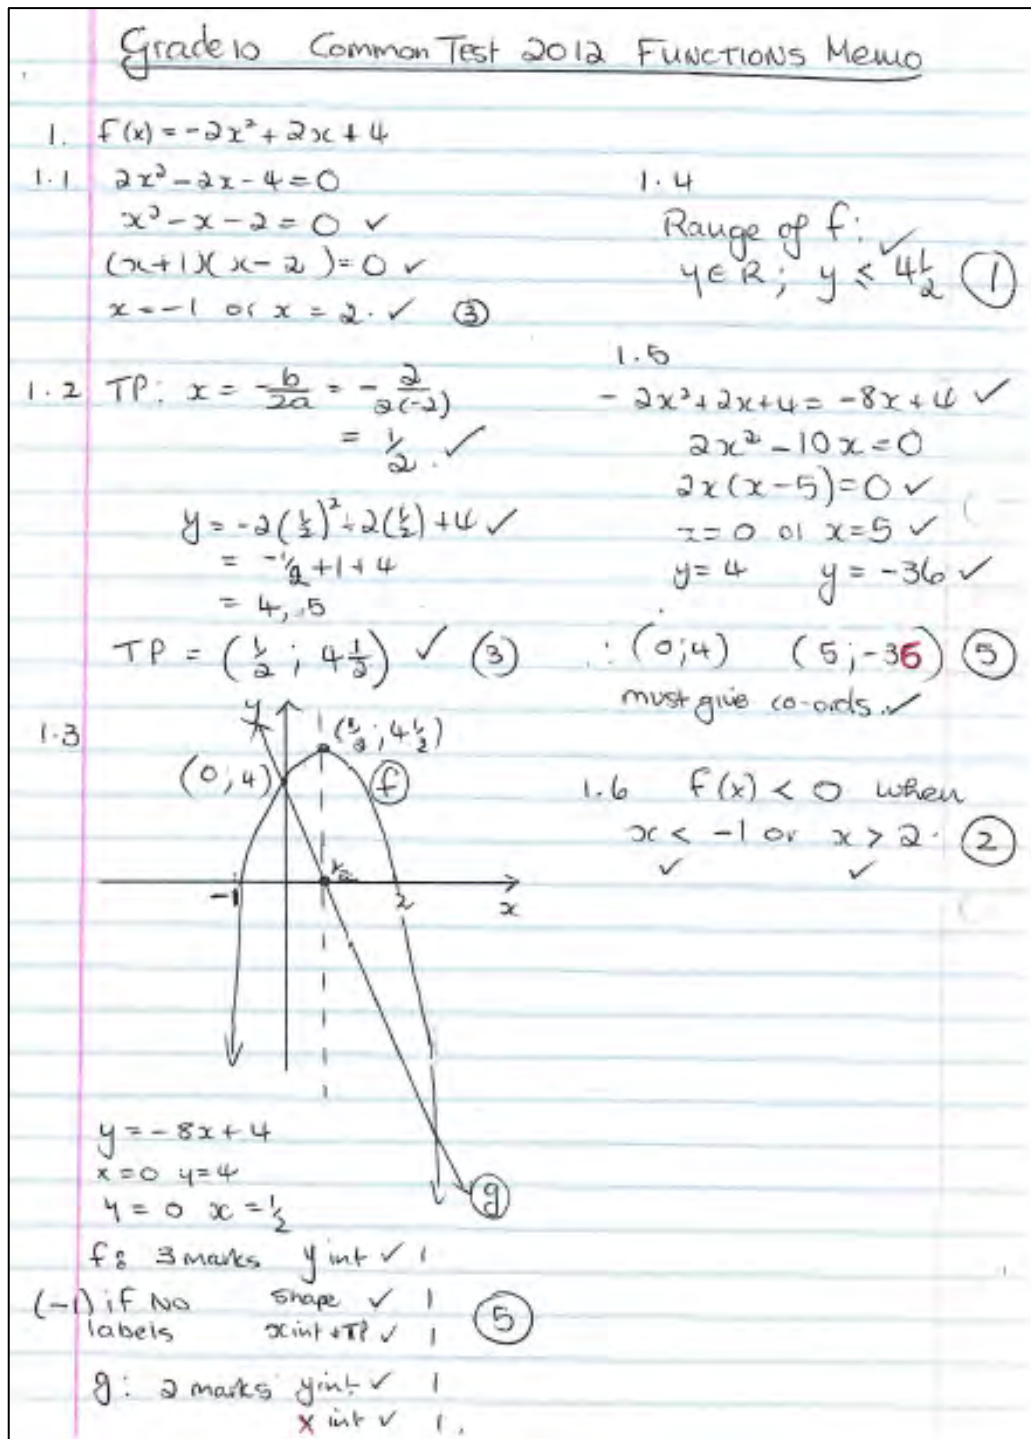 Grade 10 Common Test 2012 FUNCTIONS Memo
1. f(x) = -2x² + 2x + 4
1.1 2x² - 2x - 4 = 0
x² - x - 2 = 0 ✓
(x+1)(x-2) = 0 ✓
x = -1 or x = 2. ✓ ③
1.2 TP: x = -b/2a = -2/2(-2)
= 1/2. ✓
y = -2(1/2)² + 2(1/2) + 4 ✓
= -1/2 + 1 + 4
= 4,5
TP = (1/2 ; 4 1/2) ✓ ③
1.3
y
(1/2 ; 4 1/2)
(0;4)
f
-1
1/2
2
x
g
y = -8x + 4
x = 0 y = 4
y = 0 x = 1/2
f: 3 marks y int ✓ 1
(-1) if No shape ✓ 1
labels x int + TP ✓ 1
⑤
g: 2 marks y int ✓ 1
x int ✓ 1.
1.4
Range of f: ✓
y ∈ R; y ≤ 4 1/2 ①
1.5
-2x² + 2x + 4 = -8x + 4 ✓
2x² - 10x = 0
2x(x-5) = 0 ✓
x = 0 or x = 5 ✓
y = 4 y = -36 ✓
∴ (0;4) (5;-36) ⑤
must give co-ords. ✓
1.6 f(x) < 0 when
x < -1 or x > 2. ②
✓ ✓